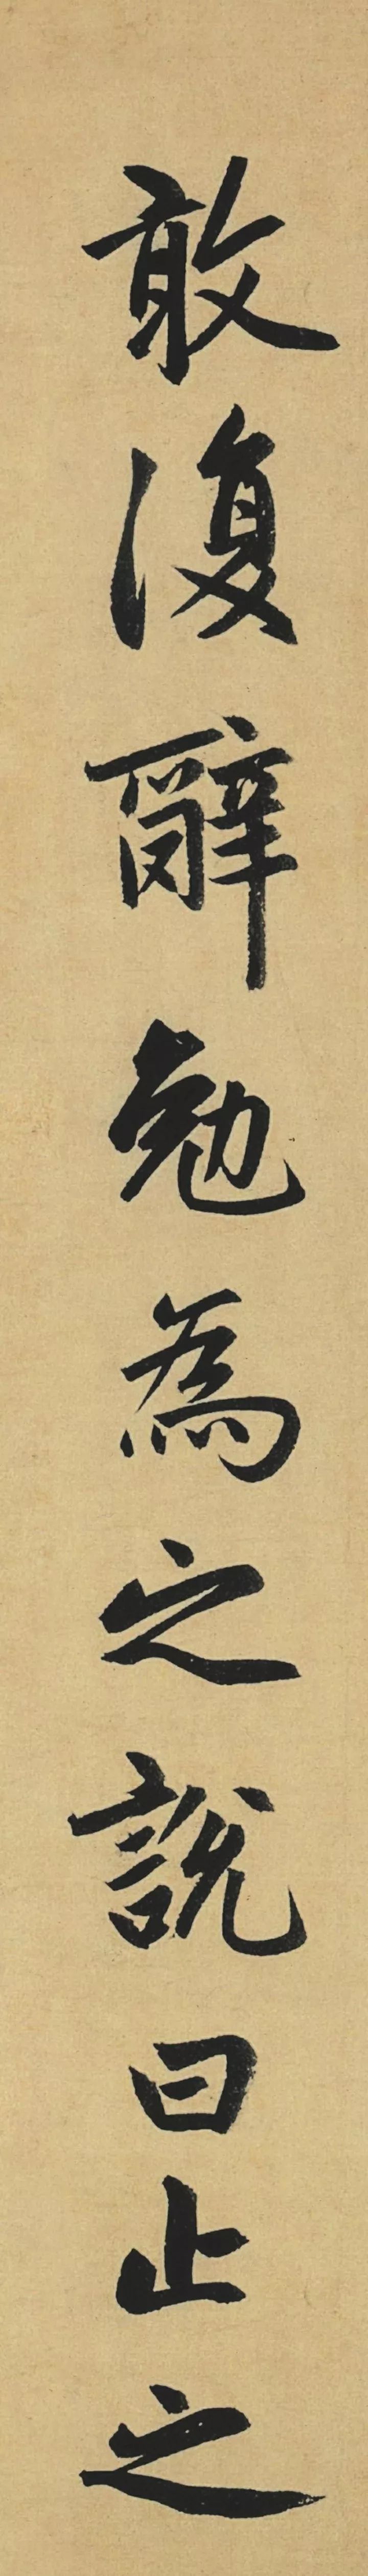 敢復辭勉為之說曰止之